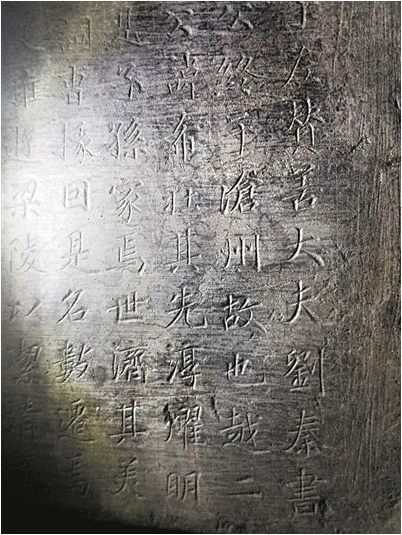 左贊善大夫劉秦書
公終于滄州故也哉二
其先淳耀明
是子孫家焉世濟其美
曹掾因是名數遷焉
陵以